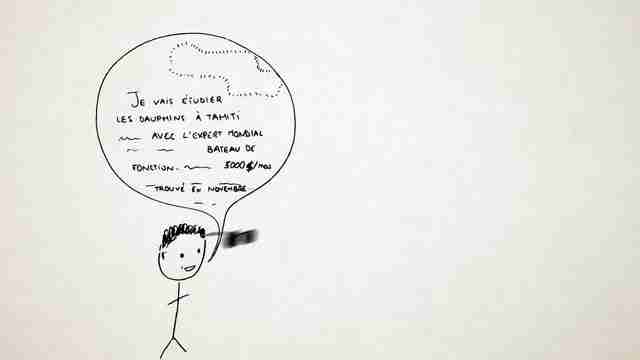 JE VAIS ÉTUDIER
LES DAUPHINS À TAHITI
AVEC L'EXPERT MONDIAL
BATEAU DE
FONCTION. 3000$/mois
TROUVÉ EN NOVEMBRE